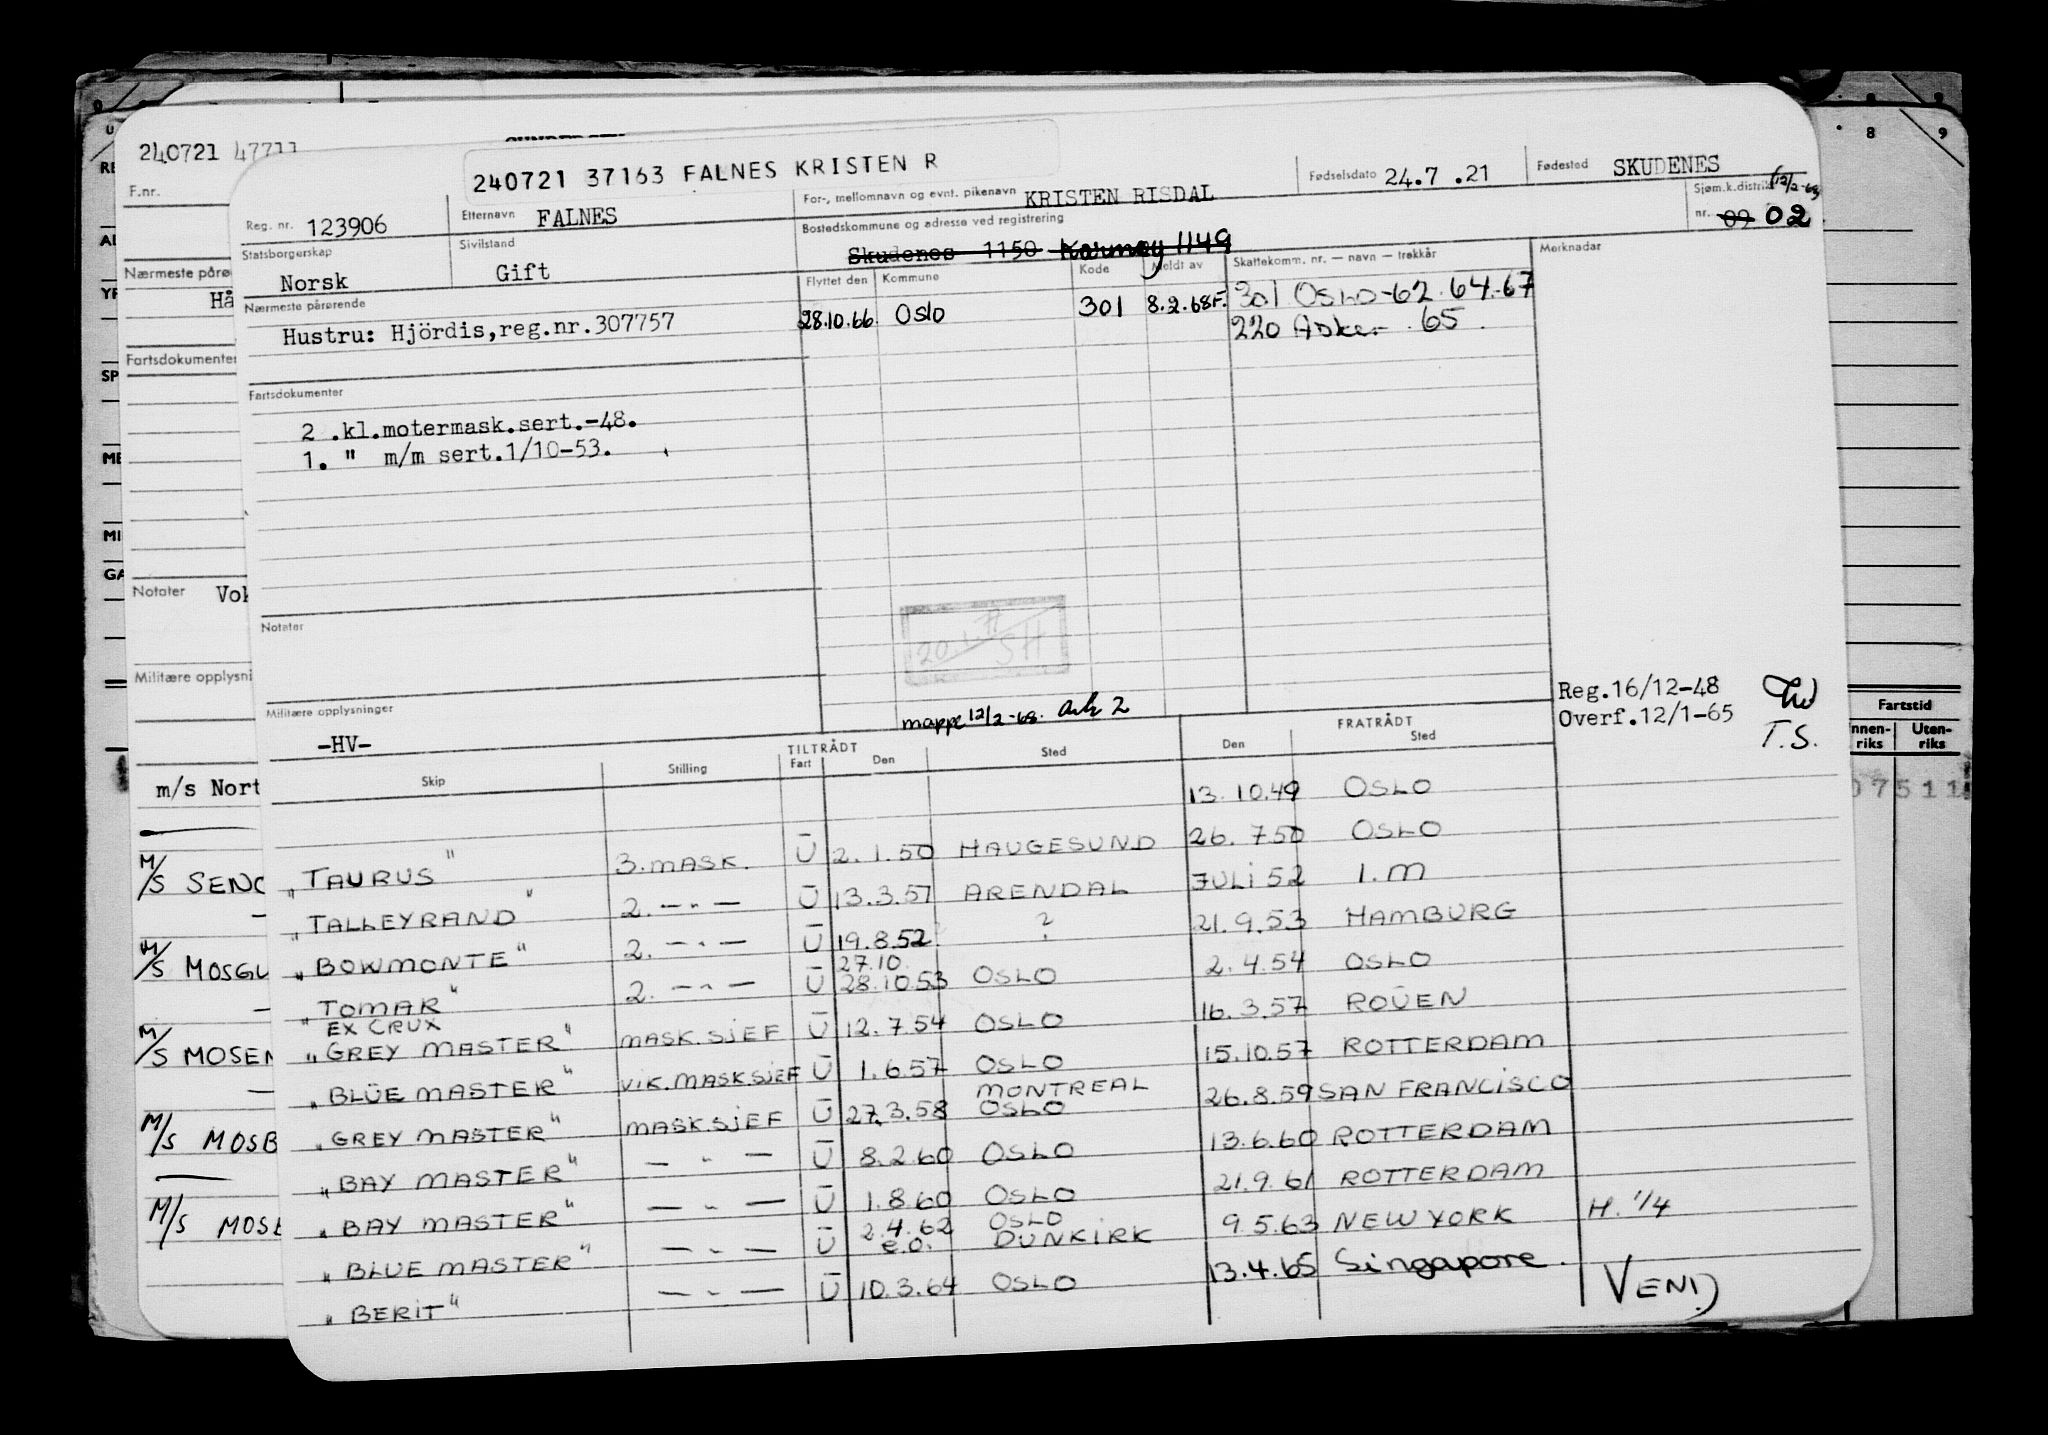 240721 47711
240721 37163 FALNES KRISTEN R
F.nr.
Reg. nr. 123906
Etternavn FALNES
For-, mellomnavn og evnt. pikenavn KRISTEN RISDAL
Fødselsdato 24.7 .21
Fødested SKUDENES
Statsborgerskap Norsk
Sivilstand Gift
Bostedskommune og adresse ved registrering
Skudenes 1150 Karmøy 1149
Sjøm.k.distrikt 12/2-68
nr. 09 02
Nærmeste pårørende
Hustru: Hjördis,reg.nr.307757
Flyttet den Kommune Kode Meldt av Skattekomm. nr. — navn — trekkår Merknadar
28.10.66. Oslo 301 8.2.68F. 301 OSLO-62.64.-67
220 Asker .65.
Fartsdokumenter
2 .kl.motermask.sert.-48.
1. " m/m sert.1/10-53.
Notater
20.1.77
SH
Militære opplysninger
-HV-
mappe 12/2-68. Ark 2
Reg.16/12-48
Overf.12/1-65 T.S.
TILTRÅDT FRATRÅDT
Skip Stilling Fart Den Sted Den Sted
13.10.49 OSLO
"TAURUS" 3.MASK. U 2.1.50 HAUGESUND 26.7.50 OSLO
"TALLEYRAND" 2. —"— U 13.3.51 ARENDAL JULI 52 I.M
"BOWMONTE" 2. —"— U 19.8.52 ? 21.9.53 HAMBURG
27.10.
"TOMAR" 2. —"— U 28.10.53 OSLO 2.4.54 OSLO
EX CRUX
"GREY MASTER" MASK.SJEF U 12.7.54 OSLO 16.3.57 ROUEN
"BLUE MASTER" VIK.MASKSJEF U 1.6.57 OSLO 15.10.57 ROTTERDAM
MONTREAL
"GREY MASTER" MASKSJEF U 27.3.58 OSLO 26.8.59 SAN FRANCISCO
"BAY MASTER" —"— U 8.2.60 OSLO 13.6.60 ROTTERDAM
"BAY MASTER" —"— U 1.8.60 OSLO 21.9.61 ROTTERDAM
2.4.62 OSLO
"BLUE MASTER" —"— U e.o. DUNKIRK 9.5.63 NEW YORK H. 1/4
"BERIT" —"— U 10.3.64 OSLO 13.4.65 Singapore.
VEND
Nærmeste påro
Hå
Fartsdokumenter
Notater Vok
Militære opplysni
m/s Nort
M/S SENO
M/S MOSGU
M/S MOSEN
M/S MOSB
M/S MOSE
RE
AD
YR
SP
ME
MI
GA
8 9
Fartstid
Innen-
riks
Uten-
riks
07511